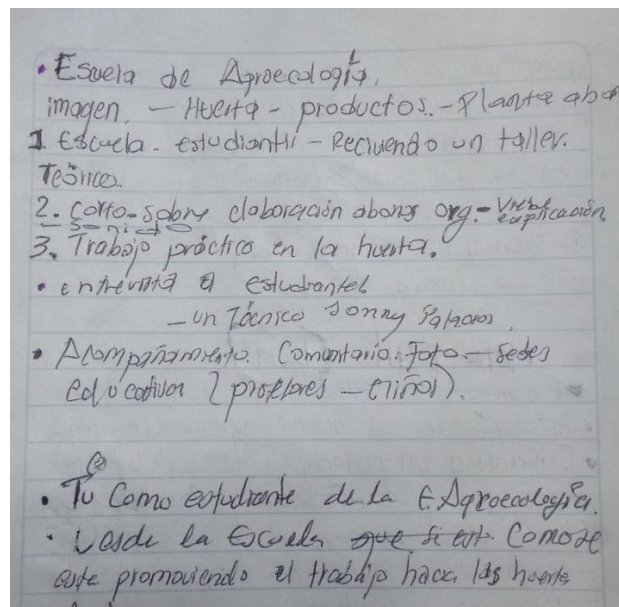 • Escuela de Agroecología.
imagen. - Huerta - productos. - Planta abo
1. Escuela. estudiantes - Reciviendo un taller.
Teórico.
2. Corto - sobre elaboración abonos org. - explicación
Sonido
3. Trabajo práctico en la huerta.
• entrevista a estudiantes
- un Técnico Jonny Palacios.
• Acompañamiento Comunitario. Foto - Sedes
educativas (profesores - niños).
• Tu Como estudiante de la E. Agroecología.
• Desde la Escuela que si est. Como se
este promoviendo el trabajo hacia las huerta